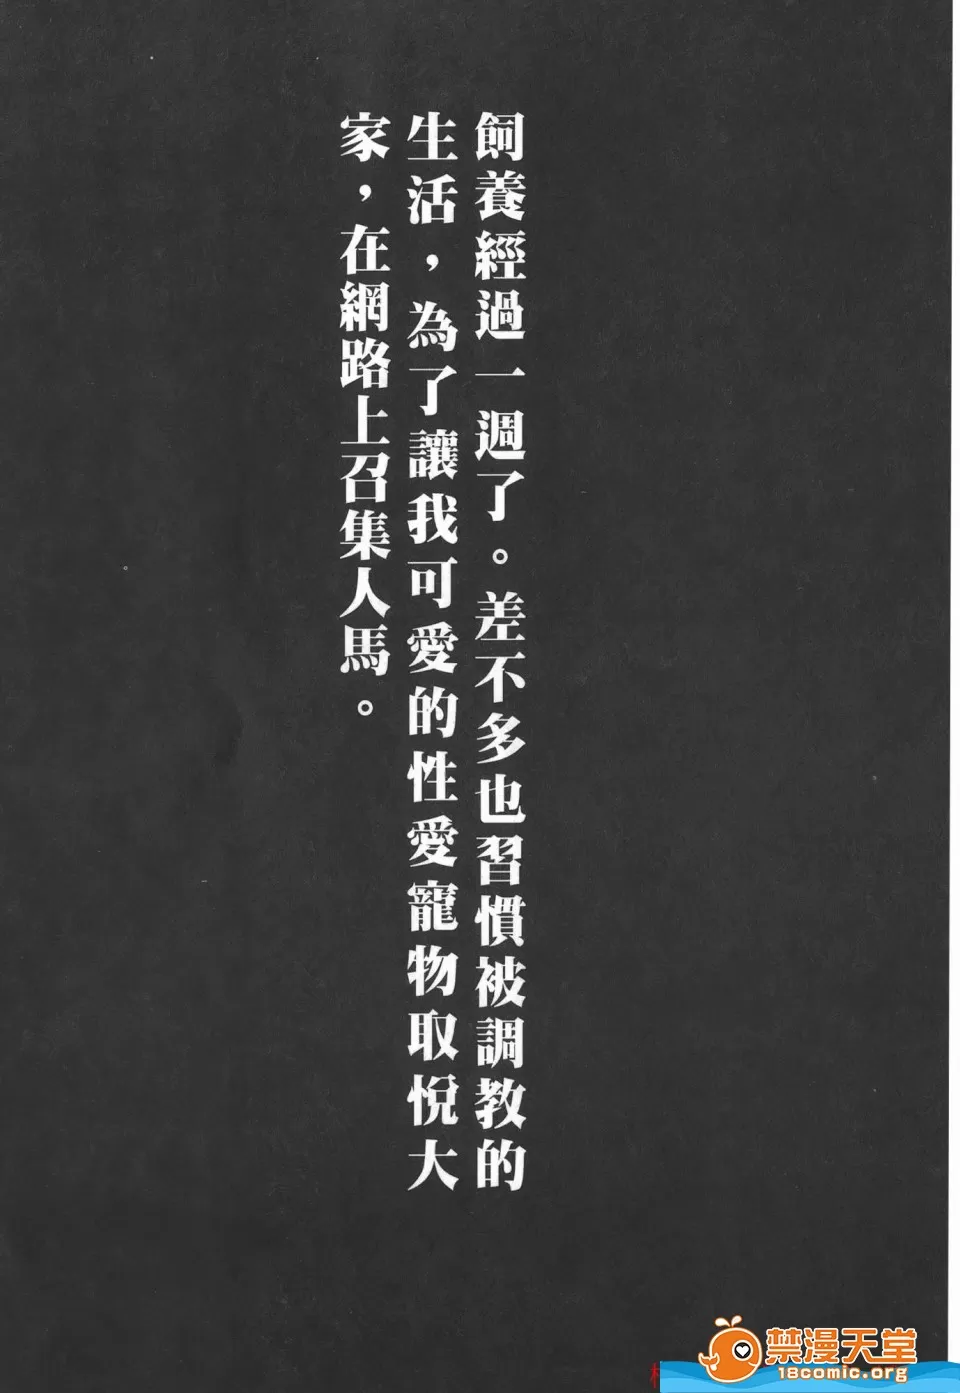 飼養經過一週了。差不多也習慣被調教的
生活，為了讓我可愛的性愛寵物取悅大
家，在網路上召集人馬。
禁漫天堂
18comic.org